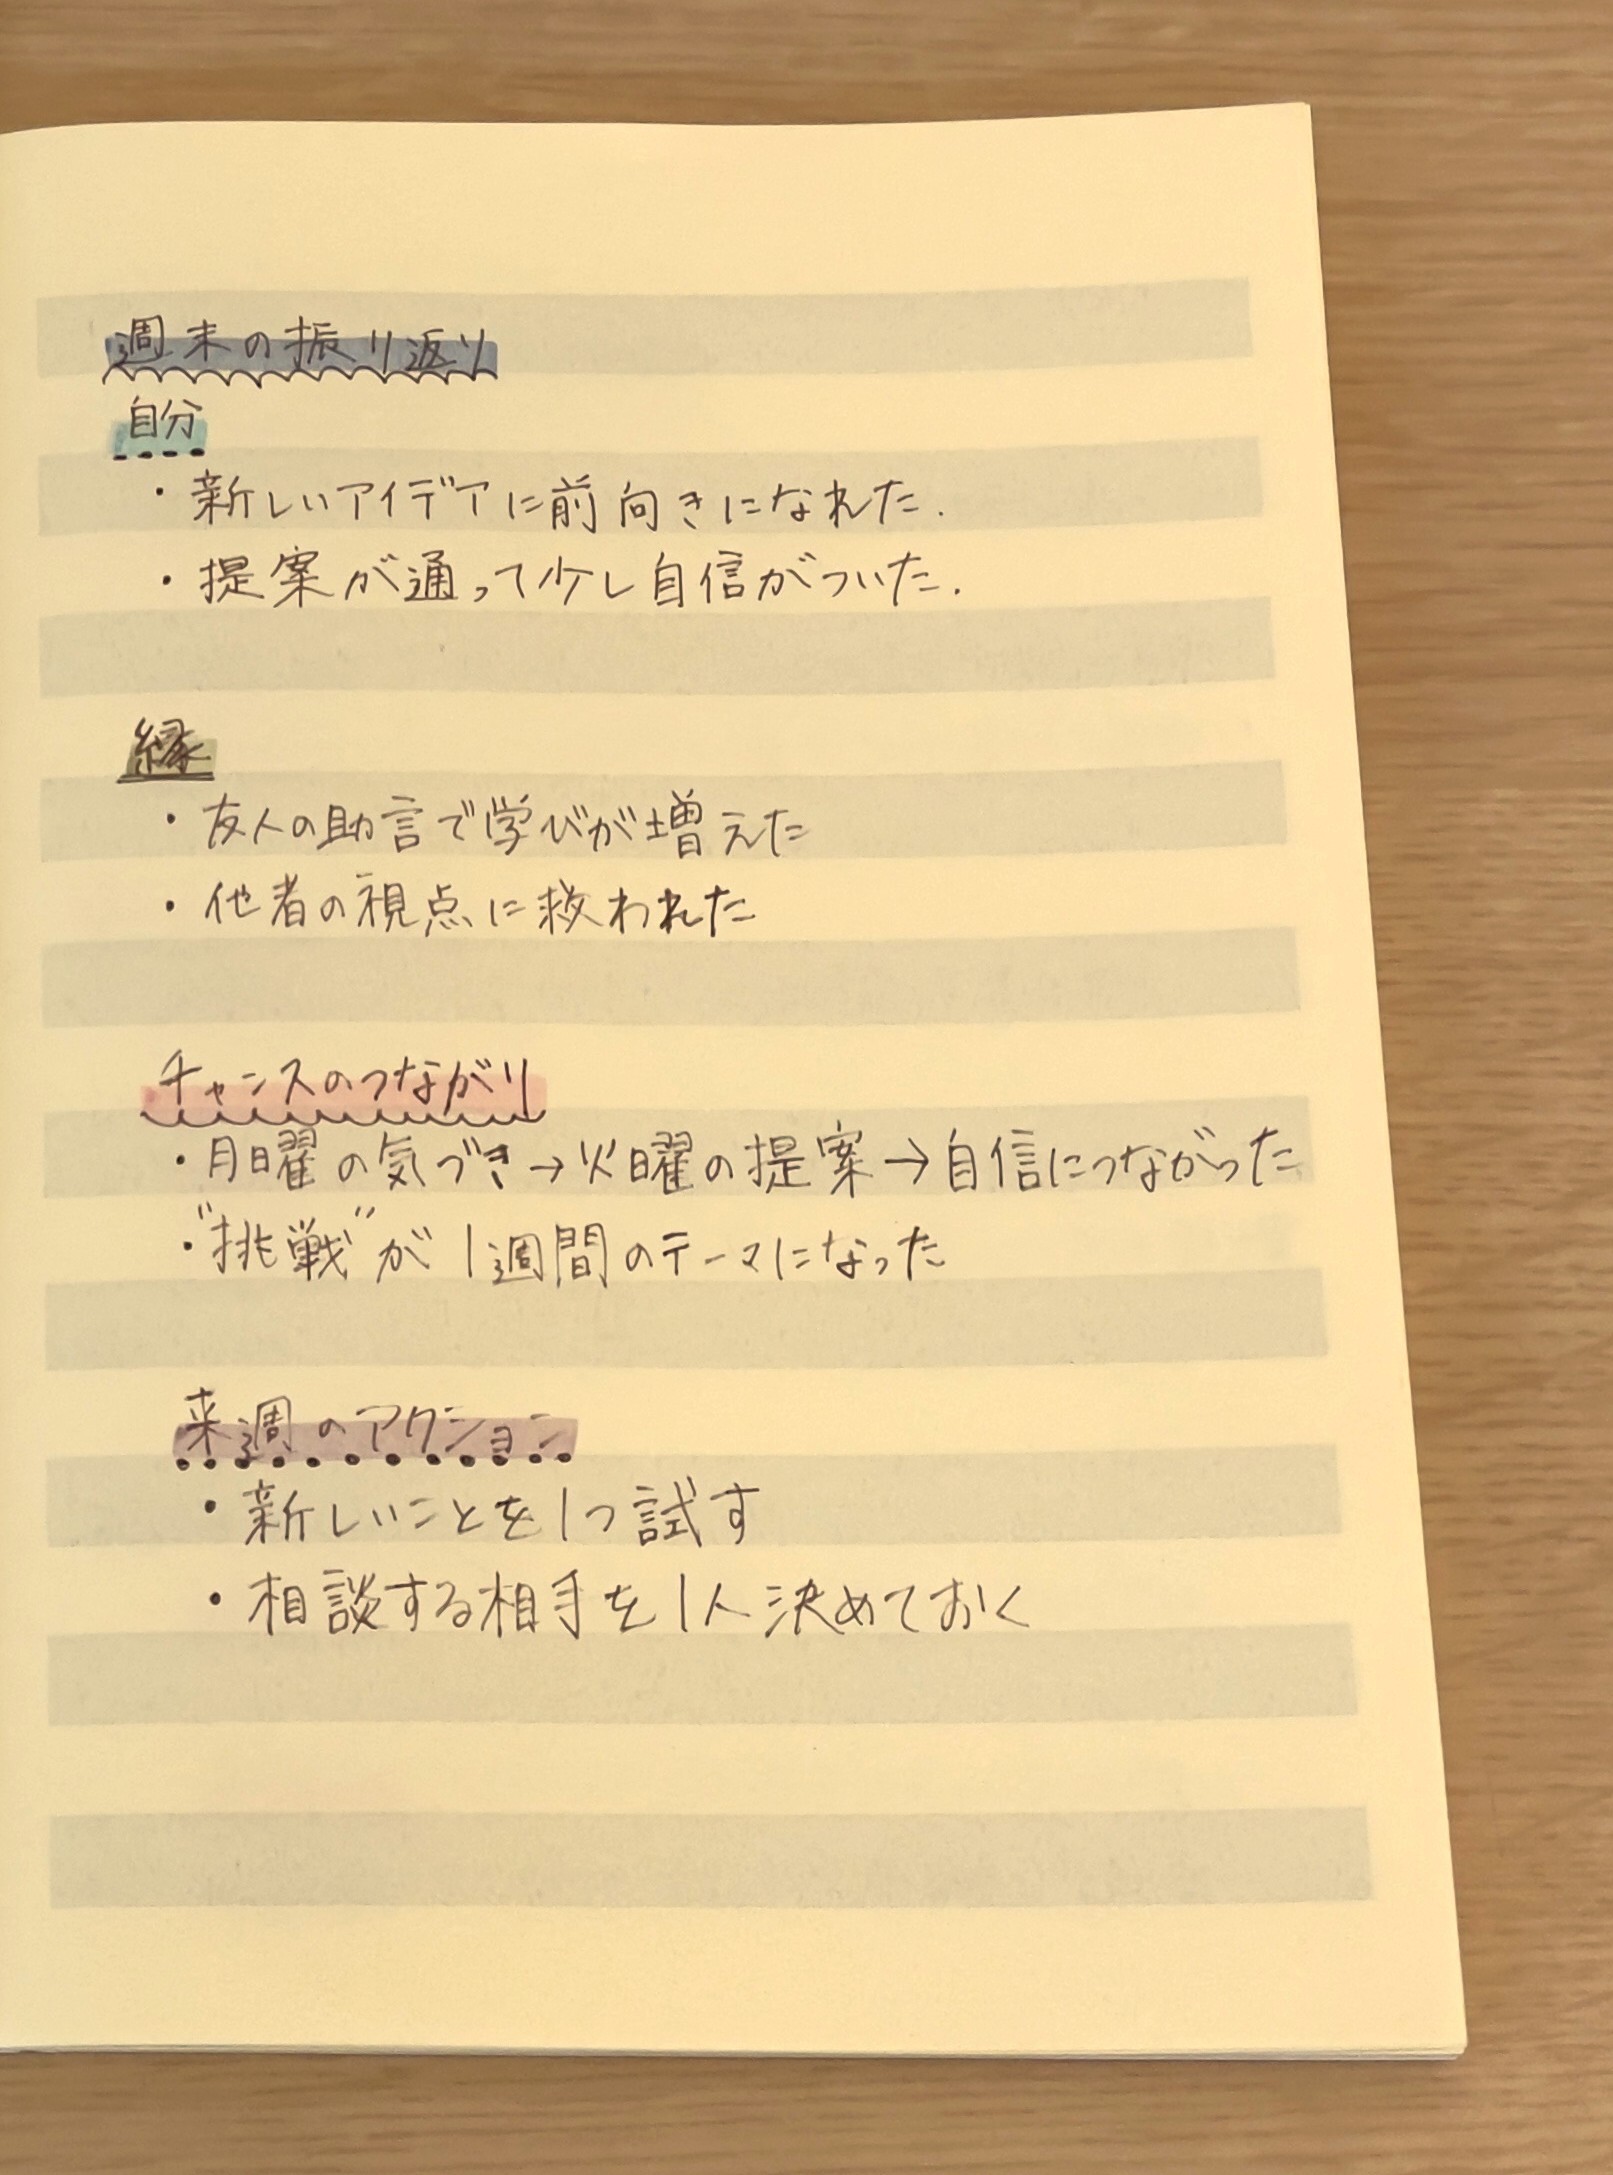 週末の振り返り
自分
・新しいアイデアに前向きになれた.
・提案が通って少し自信がついた.
縁
・友人の助言で学びが増えた
・他者の視点に救われた
チャンスのつながり
・月曜の気づき→火曜の提案→自信につながった
・"挑戦"が1週間のテーマになった
来週のアクション
・新しいことを1つ試す
・相談する相手を1人決めておく